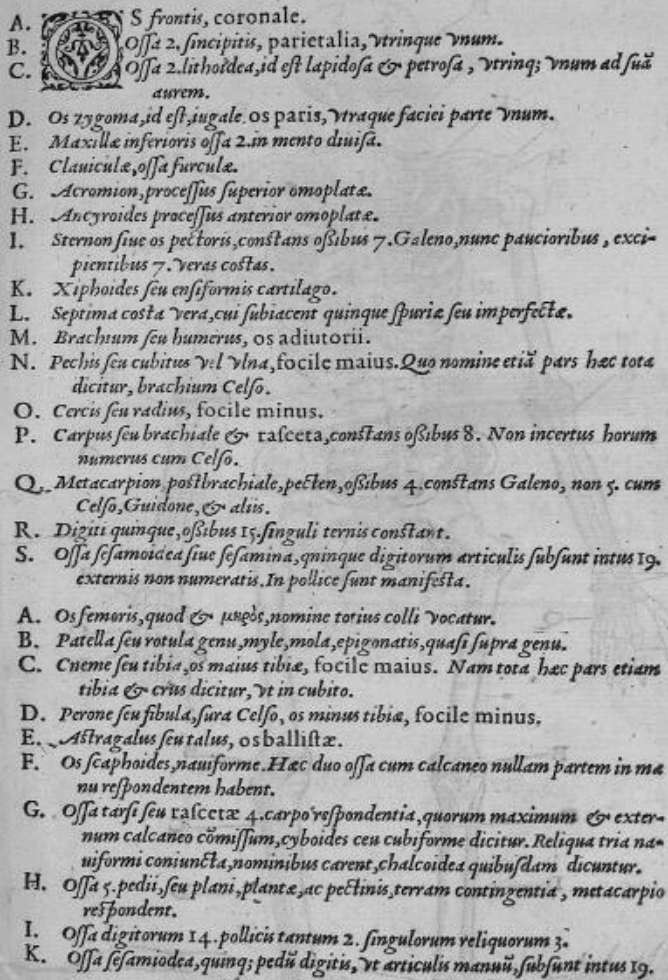 A. OS frontis, coronale.
B. Ossa 2. sincipitis, parietalia, vtrinque vnum.
C. Ossa 2. lithoidea, id est lapidosa & petrosa, vtrinq; vnum ad suā
aurem.
D. Os zygoma, id est, iugale. os paris, vtraque faciei parte vnum.
E. Maxillæ inferioris ossa 2. in mento diuisa.
F. Clauiculæ, ossa furculæ.
G. Acromion, processus superior omoplatæ.
H. Ancyroides processus anterior omoplatæ.
I. Sternon siue os pectoris, constans oßibus 7. Galeno, nunc paucioribus, exci-
pientibus 7. veras costas.
K. Xiphoides seu ensiformis cartilago.
L. Septima costa vera, cui subiacent quinque spuriæ seu imperfectæ.
M. Brachium seu humerus, os adiutorii.
N. Pechis seu cubitus vel vlna, focile maius. Quo nomine etiā pars hæc tota
dicitur, brachium Celso.
O. Cercis seu radius, focile minus.
P. Carpus seu brachiale & rasceta, constans oßibus 8. Non incertus horum
numerus cum Celso.
Q. Metacarpion postbrachiale, pecten, oßibus 4. constans Galeno, non 5. cum
Celso, Guidone, & aliis.
R. Digiti quinque, oßibus 15. singuli ternis constant.
S. Ossa sesamoidea siue sesamina, qninque digitorum articulis subsunt intus 19.
externis non numeratis. In pollice sunt manifesta.
A. Os femoris, quod & μηρὸς, nomine totius colli vocatur.
B. Patella seu rotula genu, myle, mola, epigonatis, quasi supra genu.
C. Cneme seu tibia, os maius tibiæ, focile maius. Nam tota hæc pars etiam
tibia & crus dicitur, vt in cubito.
D. Perone seu fibula, sura Celso, os minus tibiæ, focile minus.
E. Astragalus seu talus, os ballistæ.
F. Os scaphoides, nauiforme. Hæc duo ossa cum calcaneo nullam partem in ma
nu respondentem habent.
G. Ossa tarsi seu rascetæ 4. carpo respondentia, quorum maximum & exter-
num calcaneo cōmissum, cyboides ceu cubiforme dicitur. Reliqua tria na-
uiformi coniuncta, nominibus carent, chalcoidea quibusdam dicuntur.
H. Ossa 5. pedii, seu plani, plantæ, ac pectinis, terram contingentia, metacarpio
respondent.
I. Ossa digitorum 14. pollicis tantum 2. singulorum reliquorum 3.
K. Ossa sesamiodea, quinq; pedū digitis, vt articulis manuū, subsunt intus 19.